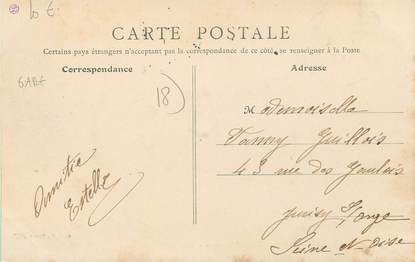 10 €
CARTE POSTALE
Certains pays étrangers n'acceptant pas la correspondance de ce côté, se renseigner à la Poste
Correspondance
Adresse
GARE
18)
Mademoiselle
Fanny Guillois
43 rue des Gaulois
Juvisy S/Orge
Seine et Oise
Amitié
Estelle